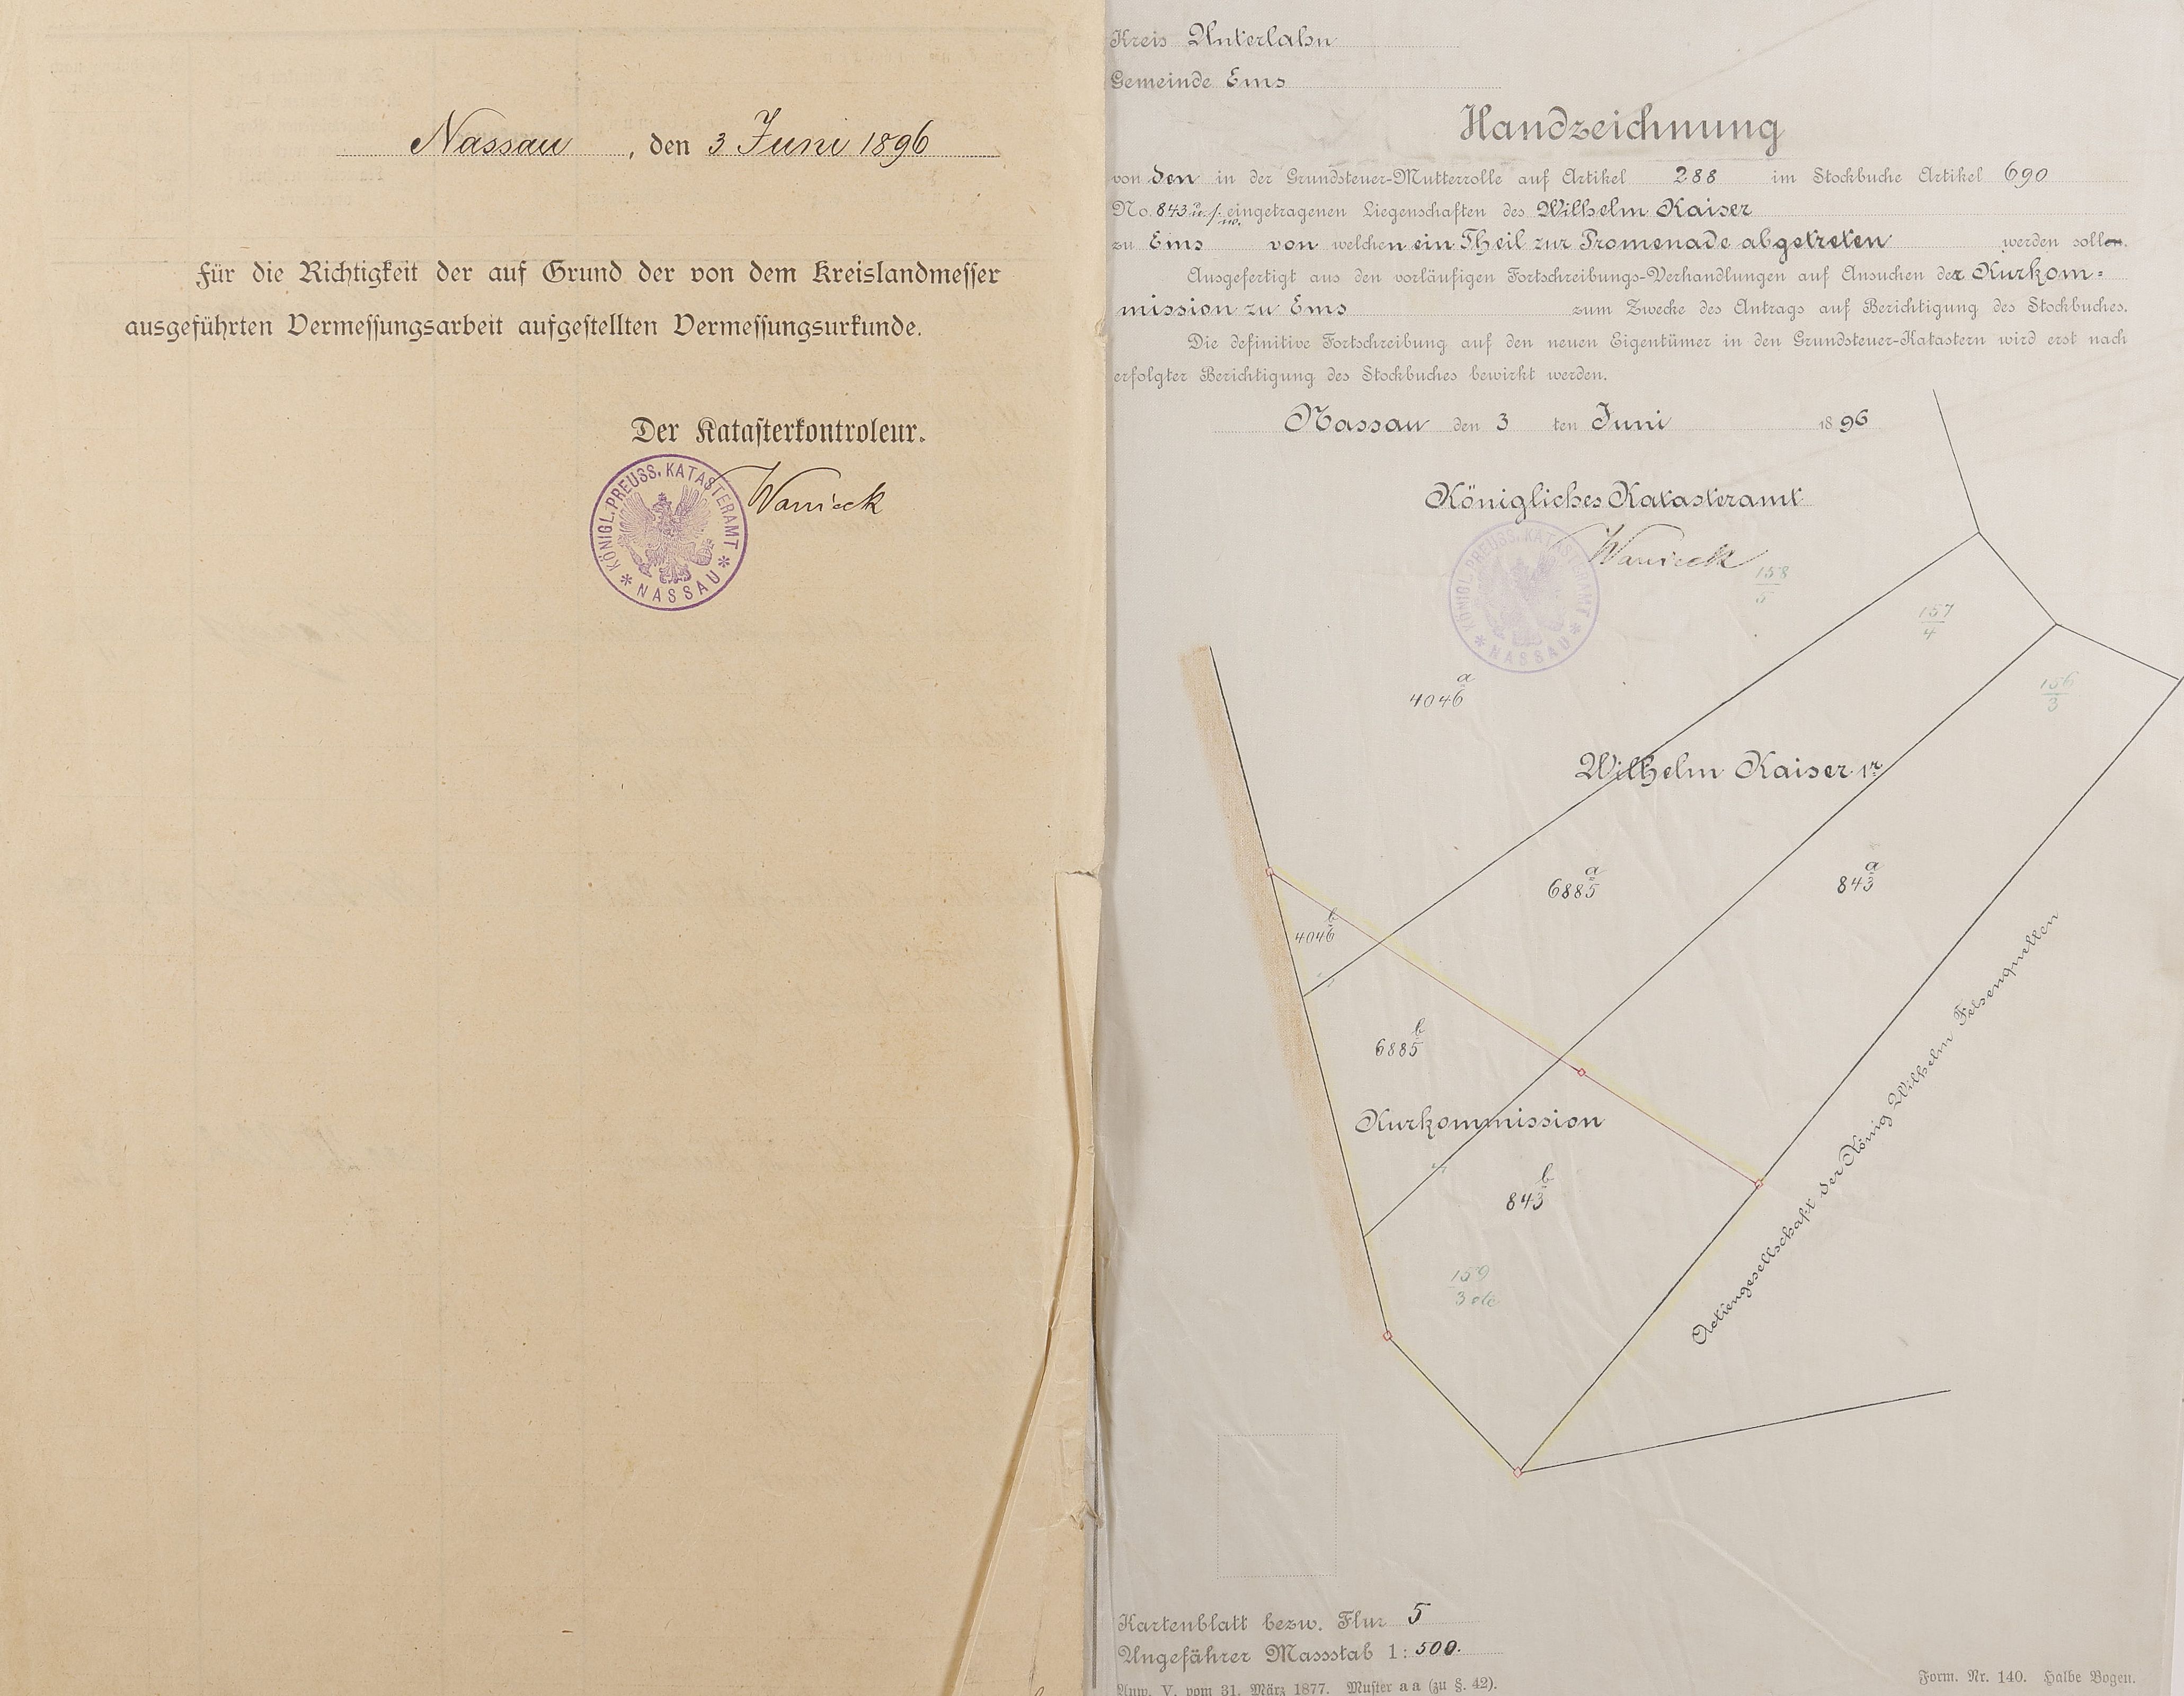 Nassau, den 3 Juni 1896
Für die Richtigkeit der auf Grund der von dem Kreislandmesser
ausgeführten Vermessungsarbeit aufgestellten Vermessungsurkunde.
Der Katasterkontroleur.
Wanieck
KÖNIGL. PREUSS. KATASTERAMT
* NASSAU *
Kreis Unterlahn
Gemeinde Ems
Handzeichnung
von den in der Grundsteuer-Mutterrolle auf Artikel 288 im Stockbuche Artikel 690
No. 843 u. s. w. eingetragenen Liegenschaften des Wilhelm Kaiser
zu Ems von welchen ein Theil zur Promenade abgetreten werden sollen.
Ausgefertigt aus den vorläufigen Fortschreibungs-Verhandlungen auf Ansuchen der Kurkom=
mission zu Ems zum Zwecke des Antrags auf Berichtigung des Stockbuches.
Die definitive Fortschreibung auf den neuen Eigentümer in den Grundsteuer-Katastern wird erst nach
erfolgter Berichtigung des Stockbuches bewirkt werden.
Nassau den 3 ten Juni 1896
Königliches Katasteramt
Wanieck
KÖNIGL. PREUSS. KATASTERAMT
* NASSAU *
158
5
157
4
156
3
4046 a
Wilhelm Kaiser 1r
6885 a
843 a
4046 b
6885 b
Kurkommission
843 b
159
3 etc
Actiengesellschaft der König Wilhelm Felsenquellen
Kartenblatt bezw. Flur 5
Ungefährer Massstab 1:500.
Anw. V. vom 31. März 1877. Muster a a (zu §. 42).
Form. Nr. 140. Halbe Bogen.